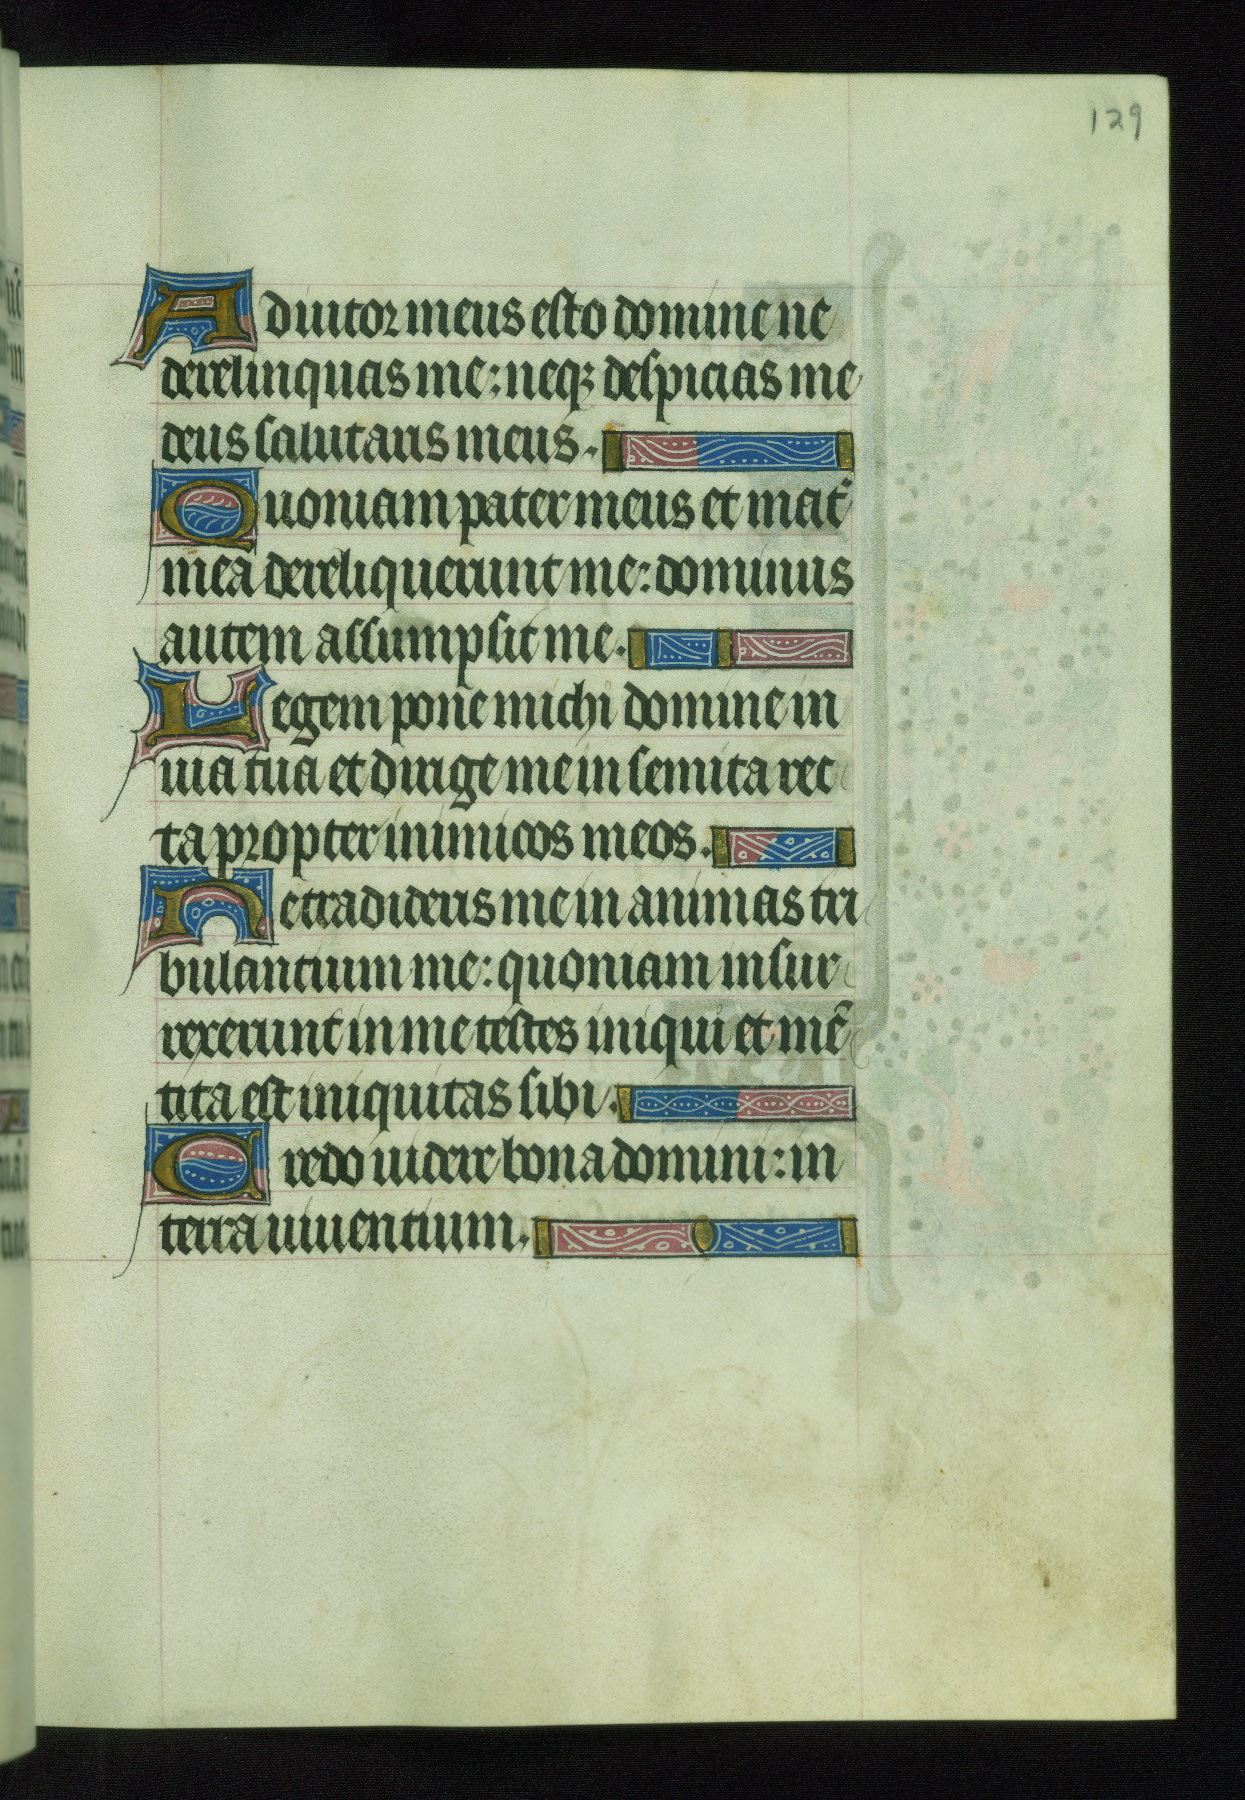 129
Adiutor meus esto domine ne
derelinquas me: neqꝫ despicias me
deus salutaris meus.
Quoniam pater meus et mat᷑
mea dereliquerunt me: dominus
autem assumpsit me.
Legem pone michi domine in
uia tua et dirige me in semita rec
ta propter inimicos meos.
Ne tradideris me in animas tri
bulantium me: quoniam insur
rexerunt in me testes iniqui et mē
tita est iniquitas sibi.
Credo uidere bona domini: in
terra uiuentium.